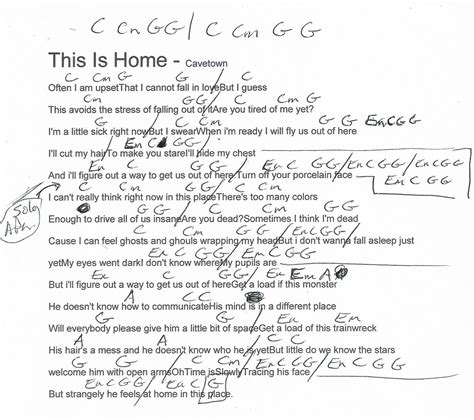 C Cm GG / C Cm G G
This Is Home - Cavetown
C Cm G G C
Often I am upsetThat I cannot fall in loveBut I guess
Cm GG / C Cm
This avoids the stress of falling out of itAre you tired of me yet?
G G / C Cm G G EmCGG
I'm a little sick right nowBut I swearWhen i'm ready I will fly us out of here
Em C GG /
I'll cut my hairTo make you stareI'll hide my chest
Em C GG / Em C GG / Em C GG / Em C GG
And i'll figure out a way to get us out of hereTurn off your porcelain face
Em C GG
C Cm GG / C
I can't really think right now in this placeThere's too many colors
Solo
G G / C Cm
Enough to drive all of us insaneAre you dead?Sometimes I think I'm dead
GG / C Cm G G / Em C GG /
Cause I can feel ghosts and ghouls wrapping my headBut i don't wanna fall asleep just
Em C GG / Em C GG
yetMy eyes went darkI don't know whereMy pupils are
Em C G Em A
But i'll figure out a way to get us out of hereGet a load if this monster
A C C
He doesn't know how to communicateHis mind is in a different place
G G Em
Will everybody please give him a little bit of spaceGet a load of this trainwreck
A A C
His hair's a mess and he doesn't know who he is yetBut little do we know the stars
G G / C Cm G G / Em C GG
welcome him with open armsOhTime isSlowlyTracing his face
Em C GG / Em C G
But strangely he feels at home in this place.